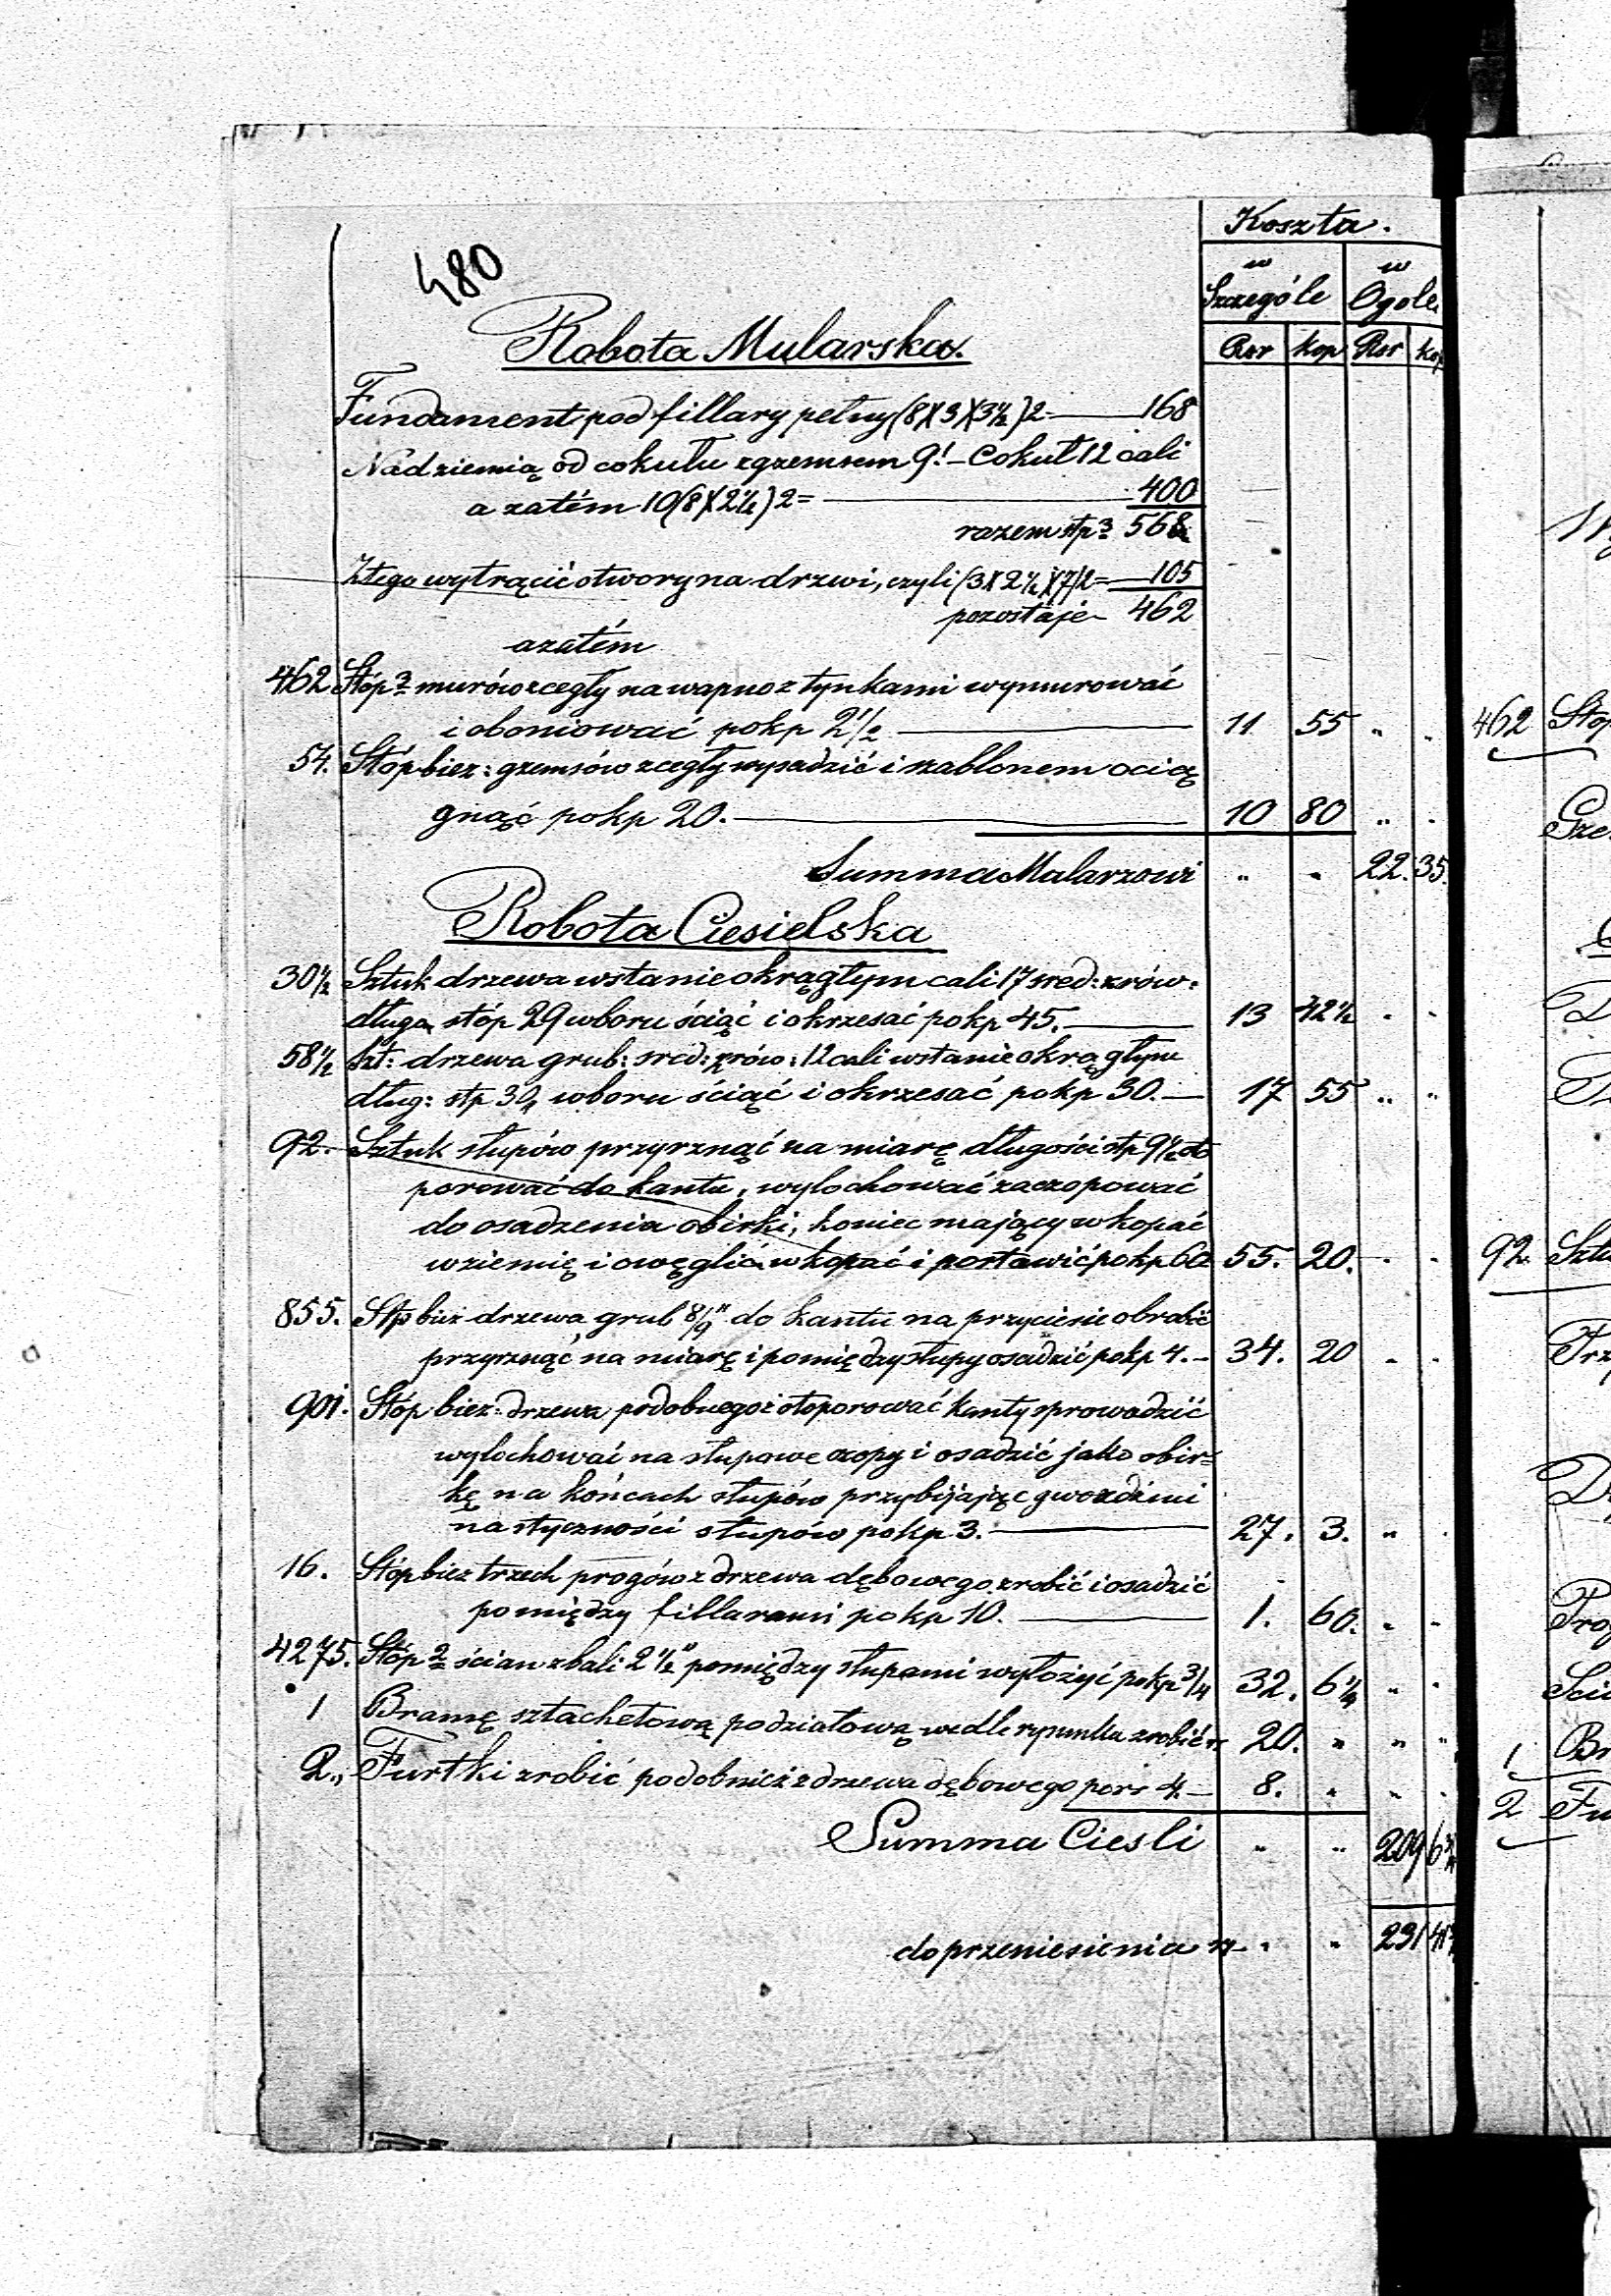 Koszta.
480
w Szczególe
w Ogole
Rsr kop Rsr kop
Robota Mularska.
Fundament pod fillary pełny (8)(3)(3½)2= 168
Nad ziemią od cokułu z gzemsem 9! – Cokuł 12 cali
a zatém 10(8)(2½)2= 400
razem stp3 568
Z tego wytrącić otwory na drzwi, czyli (3)(2½)(7)2= 105
pozostaje 462
a zatém
462 Stóp3 murów z cegły na wapno z tynkami wymurować
i oboniować po kp 2½ 11 55 " "
54. Stóp bież: gzemsów z cegły wysadzić i szablonem ocią
gnąć po kp 20. 10 80 " "
Summa Mularzowi " " 22. 35.
Robota Ciesielska
30½ Sztuk drzewa w stanie okrągłym cali 17 sred: zrów:
długa stóp 29 w boru ściąć i okrzesać po kp 45. 13 42½ " "
58½ Szt: drzewa grub: sred: zrów: 12 cali w stanie okrągłym
dług: stp 30, w boru ściąć i okrzesać po kp 30. 17 55 " "
92. Sztuk słupów przyrznąć na miarę długości stp 9½ oto
porować do kantu, wylochować zaczopować
do osadzenia obirki, koniec mający wkopać
w ziemię i owęglić wkopać i postawić po kp 60 55. 20. " "
855. Stp bież drzewa grub 8/9" do kantu na przyciesie obrobić
przyrznąć na miarę i pomiędzy słupy osadzić po kp 4. 34. 20 " "
901. Stóp bież: drzewa podobnegoż otoporować kanty sprowadzić
wylochować na słupowe czopy i osadzić jako obir=
kę na końcach słupów przybijając gwoździmi
na styczności słupów po kp 3. 27. 3. " "
16. Stóp bież trzech progów z drzewa dębowego zrobić i osadzić
pomiędzy fillarami po kp 10. 1. 60. " "
4275. Stóp 2 ścian z bali 2½" pomiędzy słupami wyłożyć po kp 3/4 32. 6¼ " "
1 Bramę sztachetową podziałową wedle rysunku zrobić 20. " " "
2., Furtki zrobić podobnież z drzewa dębowego po rs 4. 8. " " "
Summa Ciesli " " 209 6¾
do przeniesienia " " 231 41¾
462 Stóp
92. Sztu
1 Br
2 Fu